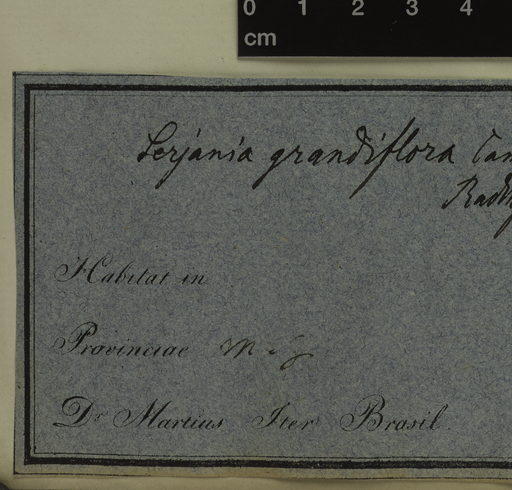 0 1 2 3 4
cm
Serjania grandiflora Cam
Radlk
Habitat in
Provinciae
Dr Martius Iter Brasil.